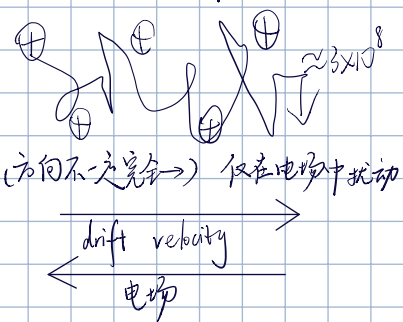 ⊕ ⊕ ⊕
≈3×10⁸
⊕ ⊕
(方向不一定完全→) 仅在电场中扰动
drift velocity
电场